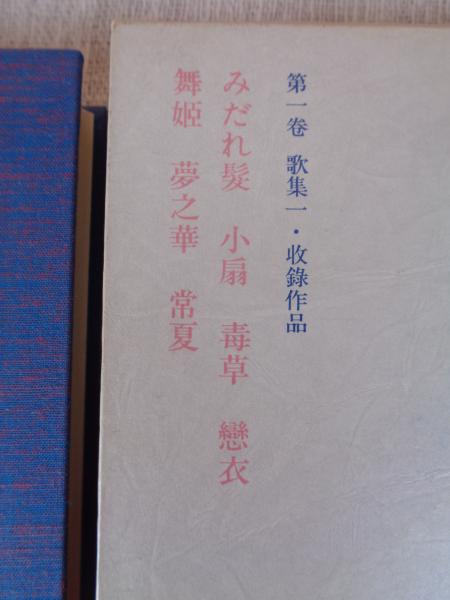 第一卷 歌集一・收錄作品
みだれ髮 小扇 毒草 戀衣
舞姬 夢之華 常夏